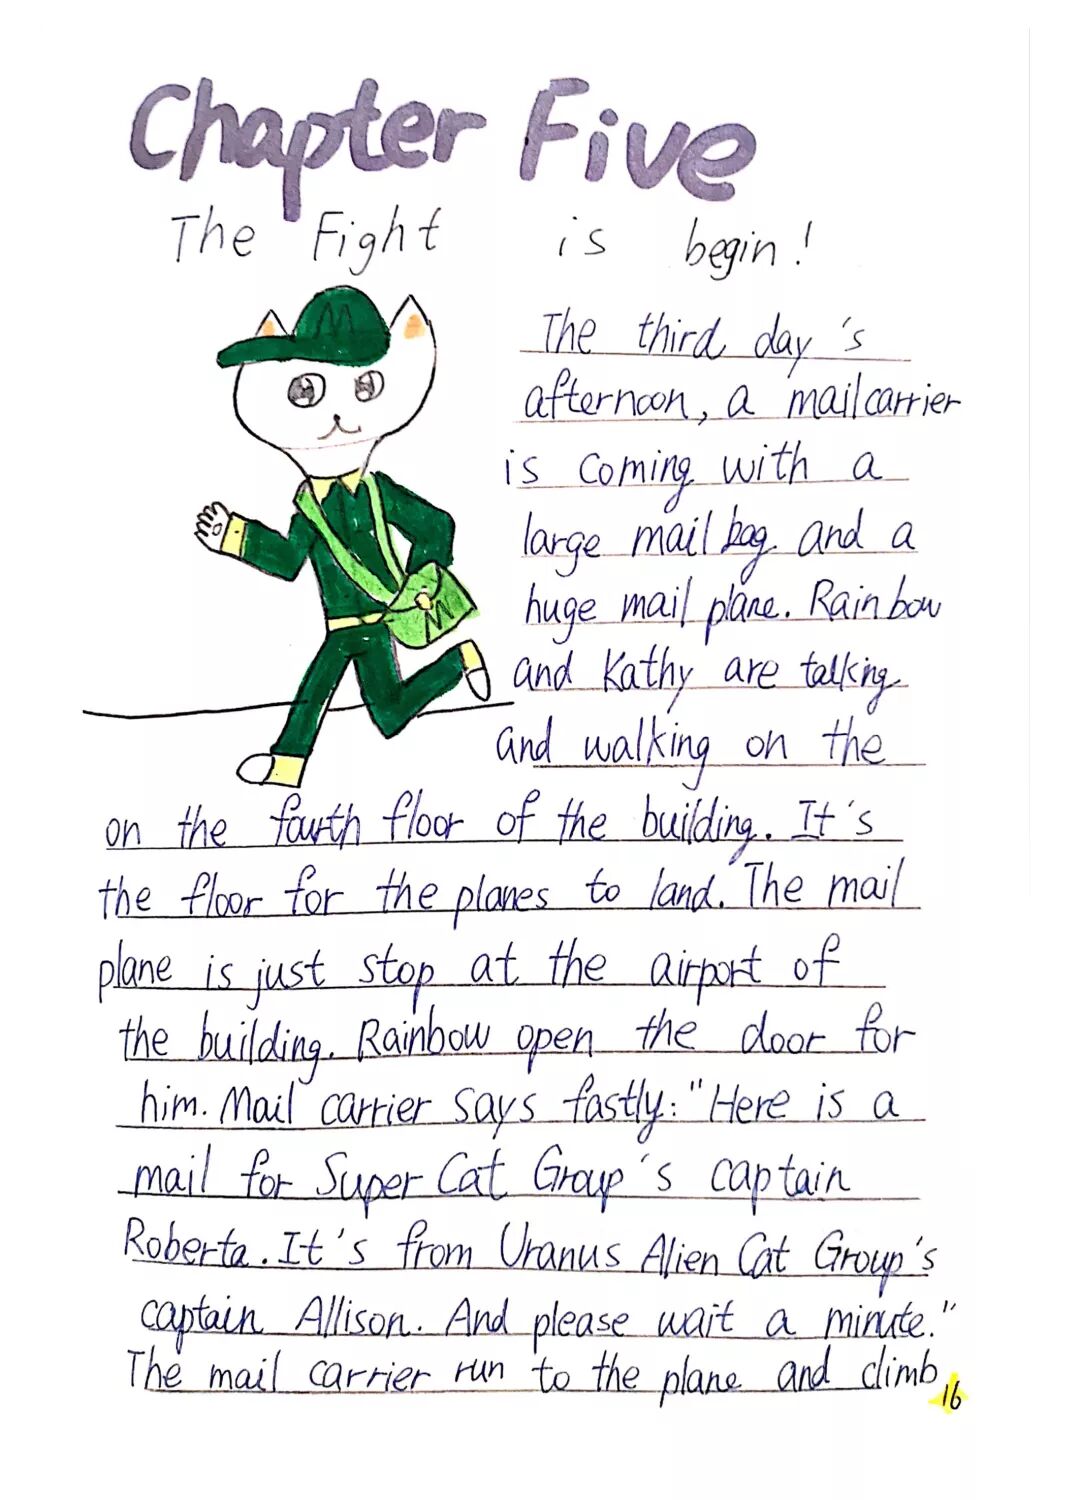 Chapter Five
The Fight is begin!
M
The third day's
afternoon, a mailcarrier
is coming with a
large mail bag and a
huge mail plane. Rainbow
and Kathy are talking
and walking on the
M
on the fourth floor of the building. It's
the floor for the planes to land. The mail
plane is just stop at the airport of
the building. Rainbow open the door for
him. Mail carrier says fastly: "Here is a
mail for Super Cat Group's captain
Roberta. It's from Uranus Alien Cat Group's
captain Allison. And please wait a minute."
The mail carrier run to the plane and climb
16